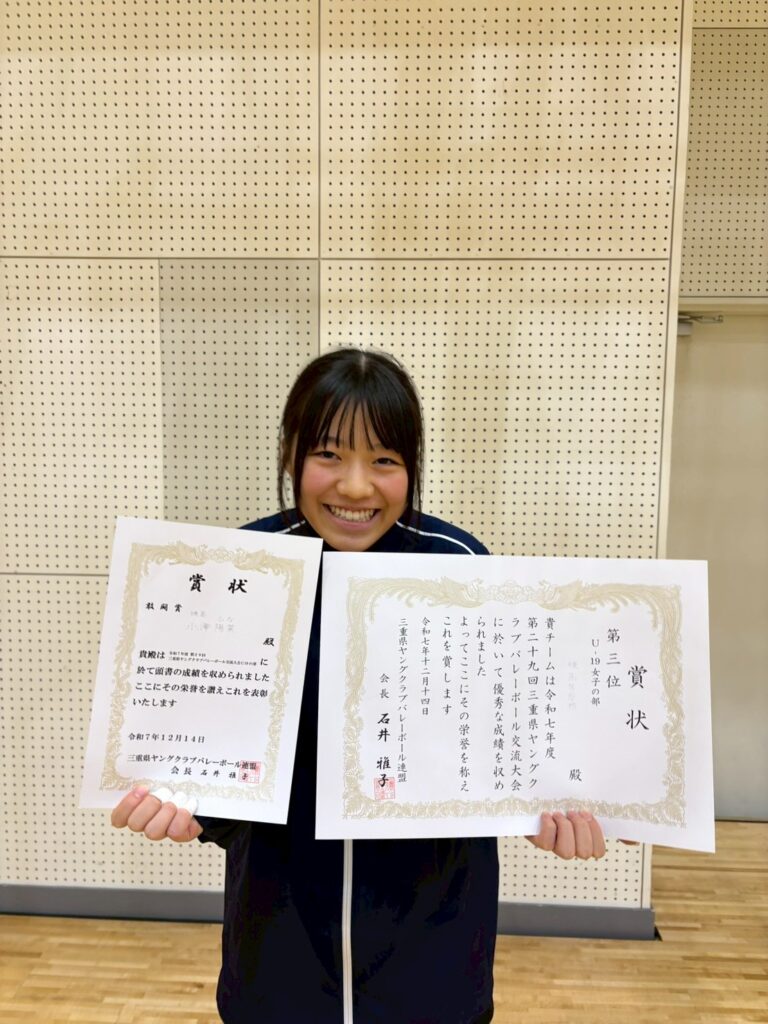 賞状
敢闘賞
殿
貴殿は 令和7年度 第29回 三重県ヤングクラブバレーボール交流大会U-19の部 に
於て頭書の成績を収められました
ここにその栄誉を讃えこれを表彰
いたします
令和7年12月14日
三重県ヤングクラブバレーボール連盟
会長 石井 雅子
賞状
第三位
U-19女子の部
殿
貴チームは令和七年度
第二十九回三重県ヤングク
ラブバレーボール交流大会
に於いて優秀な成績を収め
られました
よってここにその栄誉を称え
これを賞します
令和七年十二月十四日
三重県ヤングクラブバレーボール連盟
会長 石井 雅子